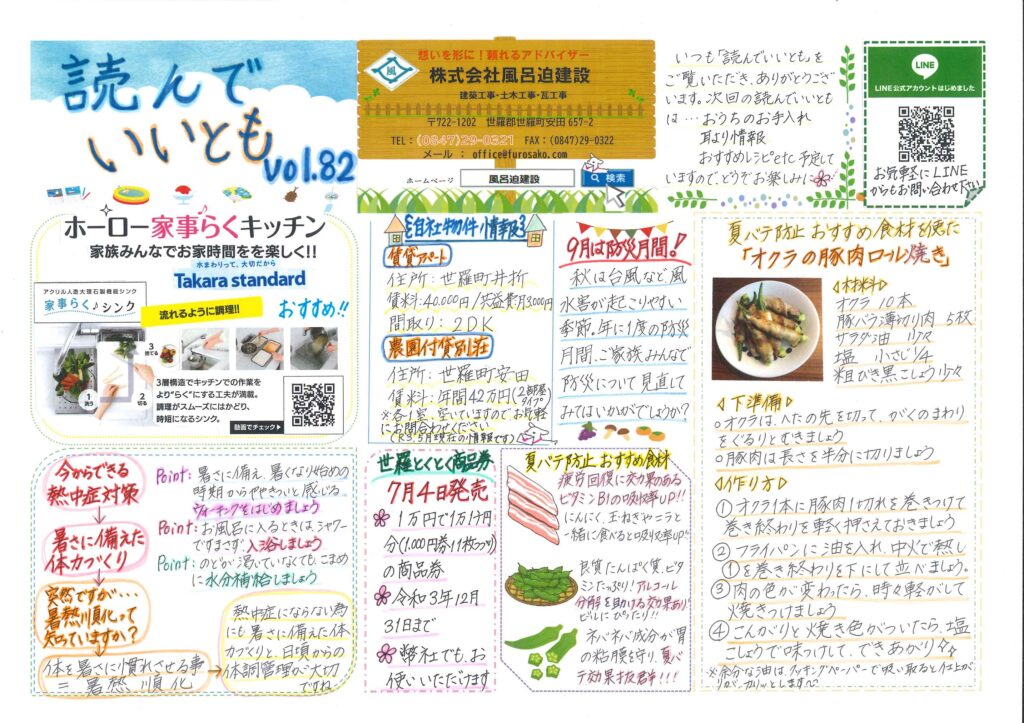 読んで
いいとも
vol.82
想いを形に！頼れるアドバイザー
風
株式会社風呂迫建設
建築工事・土木工事・瓦工事
〒722-1202 世羅郡世羅町安田 657-2
TEL：(0847)29-0321 FAX：(0847)29-0322
メール ： office@furosako.com
ホームページ 風呂迫建設 検索
いつも「読んでいいとも」を
ご覧いただき、ありがとうござ
います。次回の読んでいいとも
は…おうちのお手入れ
耳より情報
おすすめレシピetc 予定して
いますので、どうぞお楽しみに
LINE
LINE公式アカウント はじめました
お気軽に LINE
からもお問い合わせ下さい
ホーロー家事らくキッチン
家族みんなでお家時間をを楽しく!!
水まわりって、大切だから
Takara standard
アクリル人造大理石製機能シンク
家事らく♪シンク
流れるように調理!!
おすすめ!!
1 洗う
2 切る
3 捨てる
3層構造でキッチンでの作業を
より"らく"にする工夫が満載。
調理がスムーズにはかどり、
時短になるシンク。
動画でチェック
自社物件情報
賃貸アパート
住所：世羅町井折
賃料：40.000円/共益費月3,000円
間取り：2DK
農園付貸別荘
住所：世羅町安田
賃料：年間42万円(2部屋タイプ)
※各1室、空いていますのでお気軽
にお問合わせください
(R3.5月現在の情報です)
9月は防災月間!
秋は台風など、風
水害が起こりやすい
季節。年に1度の防災
月間、ご家族みんなで
防災について見直して
みてはいかがでしょうか？
夏バテ防止 おすすめ食材を使た
「オクラの豚肉ロール焼き」
材料
オクラ 10本
豚バラ薄切り肉 5枚
サラダ油 少々
塩 小さじ1/4
粗びき黒こしょう少々
下準備
○オクラは、へたの先を切って、がくのまわり
をぐるりとむきましょう
○豚肉は長さを半分に切りましょう
作り方
①オクラ1本に豚肉1切れを巻きつけて
巻き終わりを軽く押さえておきましょう
②フライパンに油を入れ、中火で熱し
①を巻き終わりを下にして並べましょう。
③肉の色が変わったら、時々転がして
焼きつけましょう
④こんがりと焼き色がついたら、塩
こしょうで味つけして、できあがり
※余分な油は、キッチンペーパーで吸い取ると仕上が
りがカリッとします
今からできる
熱中症対策
暑さに備えた
体力づくり
突然ですが…
暑熱順化って
知っていますか？
体を暑さに慣れさせる事
＝ 暑熱順化
Point：暑さに備え、暑くなり始めの
時期からややきついと感じる
ウォーキングをはじめましょう
Point：お風呂に入るときは、シャワー
ですまさず入浴しましょう
Point：のどが渇いていなくても、こまめ
に水分補給しましょう
熱中症にならない為
にも暑さに備えた体
力づくりと、日頃からの
体調管理が大切
ですね
世羅とくとく商品券
7月4日発売
1万円で1万1千円
分(1,000円券11枚つづり)
の商品券
令和3年12月
31日まで
弊社でも、お
使いいただけます
夏バテ防止 おすすめ食材
疲労回復に効果のある
ビタミンB1の吸収率UP!!
にんにく、玉ねぎやニラと
一緒に食べると吸収率UP!!
良質たんぱく質、ビタ
ミンたっぷり！アルコール
分解を助ける効果あり
ビールにぴったり!!
ネバネバ成分が胃
の粘膜を守り、夏バ
テ効果抜群!!!